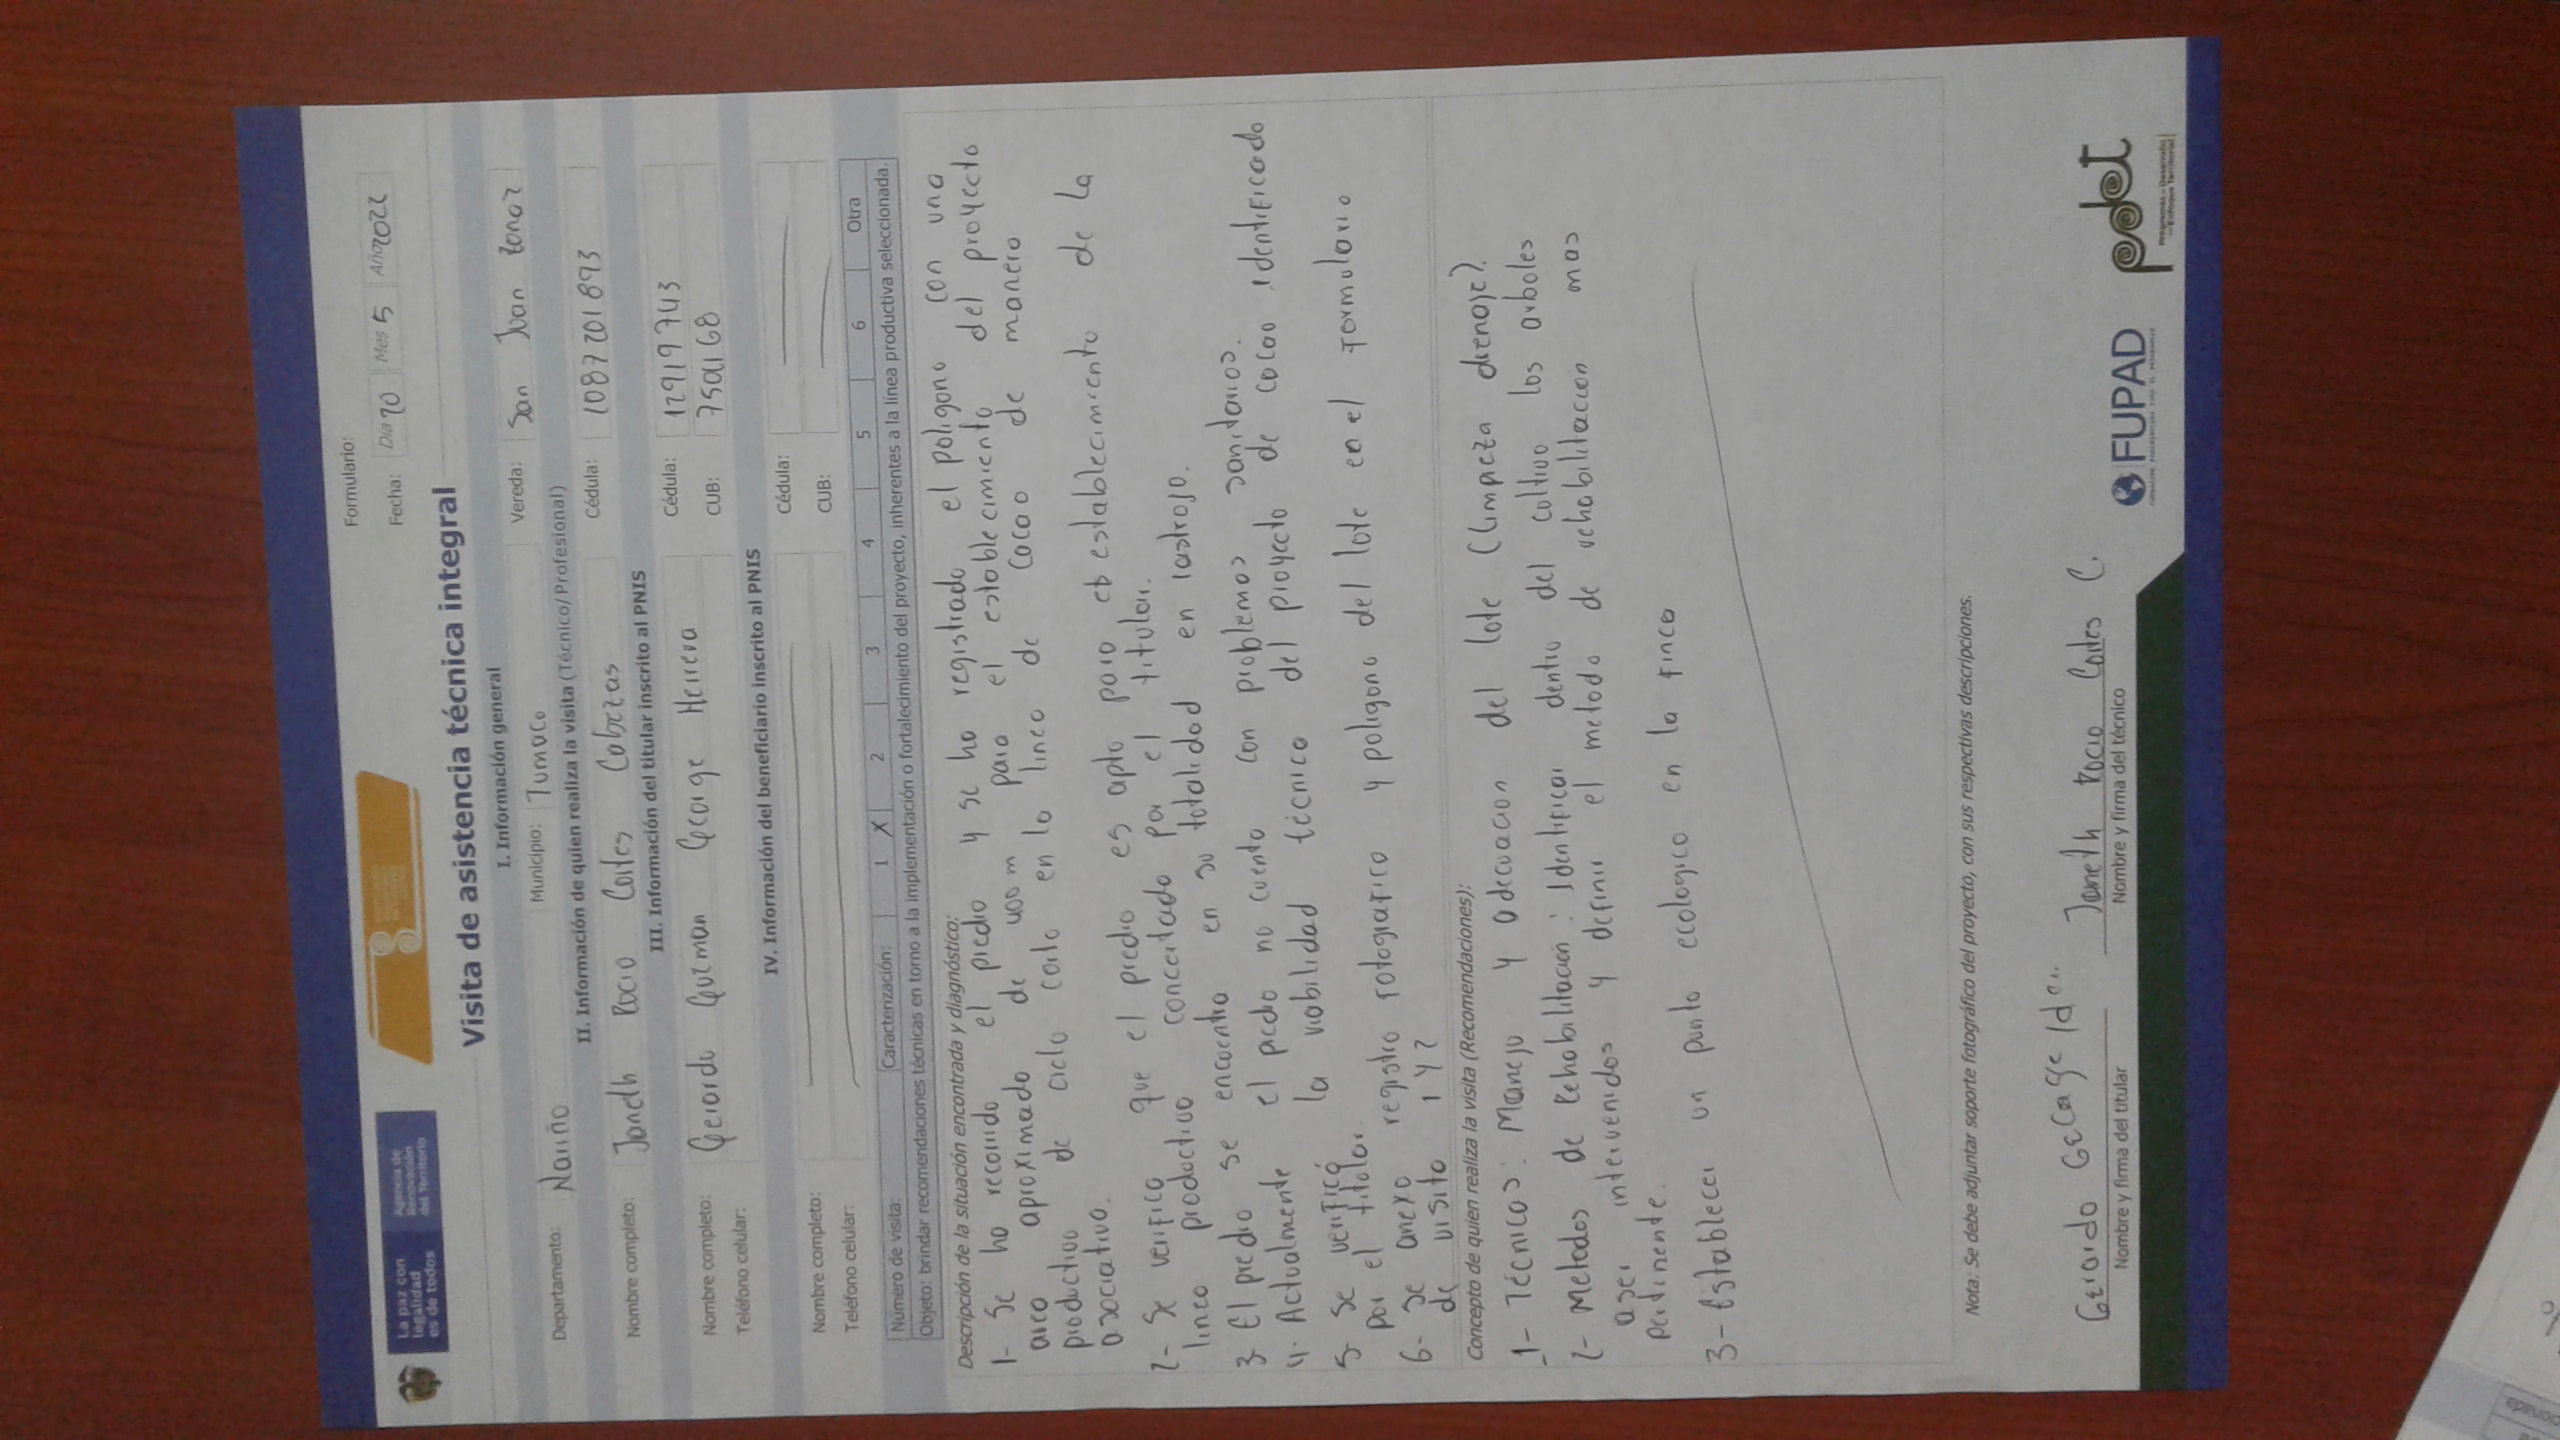 La paz con
legalidad
es de todos
Agencia de
Renovación
del Territorio
Formulario:
Fecha: Día 20 Mes 5 Año 2022
Visita de asistencia técnica integral
I. Información general
Departamento: Nariño Municipio: Tumaco Vereda: San Juan
II. Información de quien realiza la visita (Técnico/Profesional)
Nombre completo: Janeth Rocio Cortes Cabezas Cédula: 1087201893
III. Información del titular inscrito al PNIS
Nombre completo: Gerardo Guzman George Herrera Cédula: 12919743
Teléfono celular: CUB: 7501168
IV. Información del beneficiario inscrito al PNIS
Nombre completo: Cédula:
Teléfono celular: CUB:
Número de visita: Caracterización: 1 X 2 3 4 5 6 Otra
Objeto: brindar recomendaciones técnicas en torno a la implementación o fortalecimiento del proyecto, inherentes a la línea productiva seleccionada.
Descripción de la situación encontrada y diagnóstico:
1- Se ha recorrido el predio y se ha registrado el poligono con una
area aproximado de m para el establecimiento del proyecto
productivo de ciclo corto en la linea de cacao de manera
asociativa.
2- Se verifico que el predio es apto para el establecimiento de la
linea productivo concertado por el titular.
3- El predio se encuentra en su totalidad en rastrojo.
4. Actualmente el predio no cuenta con problemas sanitarios.
5- Se verificó la viabilidad técnica del proyecto de cacao identificado
por el titular.
6- Se anexo registro fotografico y poligono del lote en el formulario
de visita 1 y 2
Concepto de quien realiza la visita (Recomendaciones):
1- Técnicas: Manejo y adecuacion del lote (Limpieza drenaje).
2- Metodos de Rehabilitación: Identificar dentro del cultivo los arboles
a ser intervenidos y definir el metodo de rehabilitacion mas
pertinente.
3- Establecer un punto ecologico en la finca
Nota: Se debe adjuntar soporte fotográfico del proyecto, con sus respectivas descripciones.
Gerardo Janeth Rocio Cortes C.
Nombre y firma del titular Nombre y firma del técnico
FUPAD
pdet
Programas de Desarrollo
con Enfoque Territorial